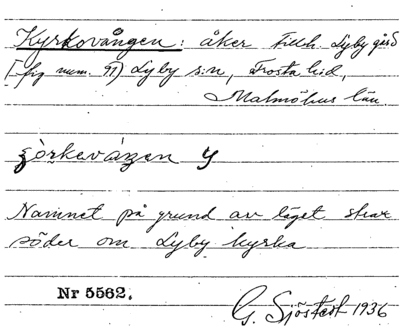 Kyrkovången: åker tillh. Lyby gård
(fig num. 91) Lyby s:n, Frosta hd,
Malmöhus län.
Namnet på grund av läget strax
söder om Lyby kyrka
Nr 5562.
G. Sjöstedt 1936